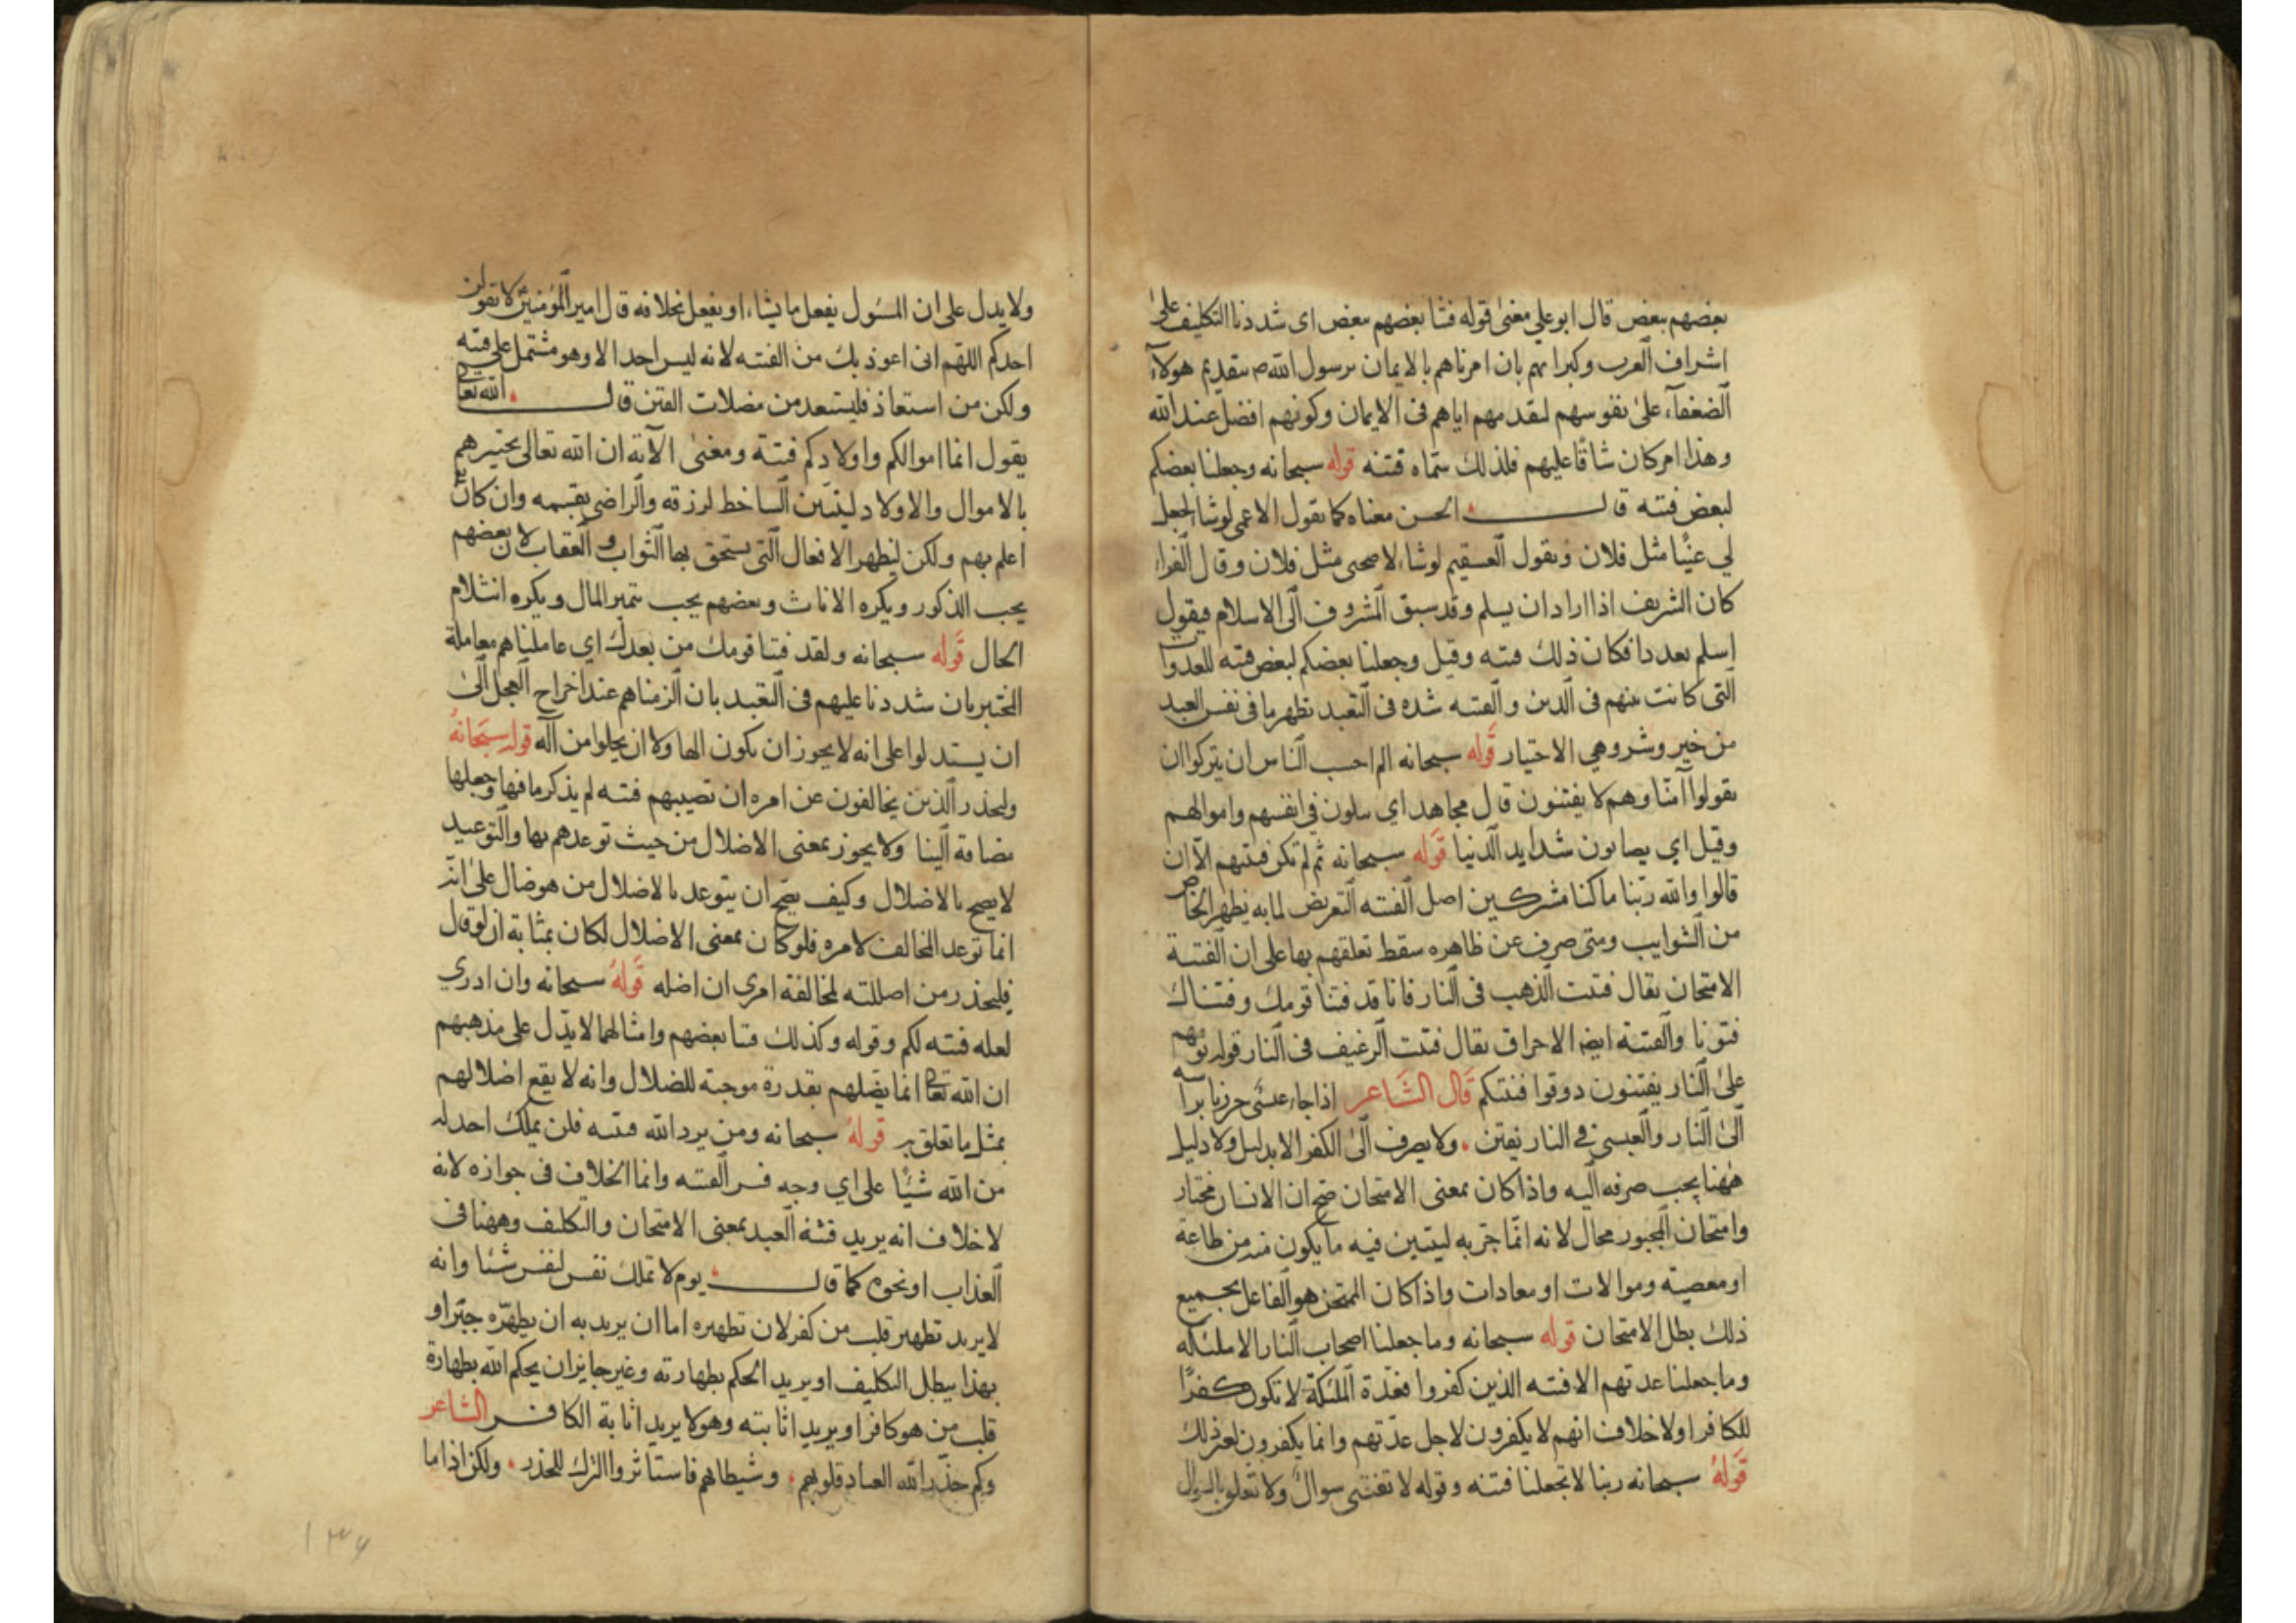 بعضهم ببعض قال ابو علي معنى قوله فتنا بعضهم ببعض اى شددنا التكليف على
اشراف العرب وكبرائهم بان امرناهم بالايمان برسول الله ص بتقديم هولاء
الضعفآء على نفوسهم لتقدمهم اياهم فى الايمان وكونهم افضل عند الله
وهذا امر كان شاقا عليهم فلذلك سماه فتنه قوله سبحانه وجعلنا بعضكم
لبعض فتنه قال الحسن معناه كما يقول الاعمى لو شاء لجعل
لي غنيا مثل فلان ويقول السقيم لو شاء لاصحنى مثل فلان وقال الفراء
كان الشريف اذا اراد ان يسلم وقد سبق المشروف الى الاسلام فيقول
اسلم بعد ذا فكان ذلك فتنه وقيل وجعلنا بعضكم لبعض فتنه للعدوان
التى كانت بينهم فى الدين والفتنه شده فى التعبد تظهر ما فى نفس العبد
من خير وشر وهي الاختبار قوله سبحانه الم احسب الناس ان يتركوا ان
يقولوا آمنا وهم لا يفتنون قال مجاهد اي يبتلون في انفسهم واموالهم
وقيل اي يصابون شدايد الدنيا قوله سبحانه ثم لم تكن فتنتهم الا ان
قالوا والله ربنا ما كنا مشركين اصل الفتنه التعريض لما به يظهر الخالص
من الشوايب ومتى صرف عن ظاهره سقط تعلقهم بها على ان الفتنة
الامتحان يقال فتنت الذهب فى النار فانا قد فتنا قومك وفتناك
فتونا والفتنة ايضا الاحراق يقال فتنت الرغيف فى النار قوله يوم هم
على النار يفتنون ذوقوا فتنتكم قال الشاعر اذا جاء عبسى
الى النار والعبسى في النار يفتن ولا يصرف الى الكفر الا بدليل ولا دليل
ههنا يجب صرفه اليه واذا كان بمعنى الامتحان صح ان الانسان مختار
وامتحان المجبور محال لانه انما جرّبه ليتبين فيه ما يكون منه من طاعة
او معصية وموالات او معادات واذا كان الممتحن هو الفاعل بجميع
ذلك بطل الامتحان قوله سبحانه وما جعلنا اصحاب النار الا ملئكه
وما جعلنا عدتهم الا فتنه الذين كفروا فعدّة الملئكة لا تكون كفرًا
للكافر اولا خلاف انهم لا يكفرون لاجل عدّتهم وانما يكفرون لغير ذلك
قوله سبحانه ربنا لا تجعلنا فتنه وقوله لا تفتنى سوال ولا تعلق بالسوال
ولا يدل على ان المسئول يفعل ما يشاء او يفعل بخلافه قال امير المؤمنين لا يقولن
احدكم اللهم انى اعوذ بك من الفتنه لانه ليس احد الا وهو مشتمل على فتنه
ولكن من استعاذ فليستعذ من مضلات الفتن قال الله تعالى
يقول انما اموالكم واولادكم فتنة ومعنى الآية ان الله تعالى يختبرهم
بالاموال والاولاد ليتبين الساخط لرزقه والراضى بقسمه وان كان
اعلم بهم ولكن ليظهر الافعال التى يستحق بها الثواب والعقاب لان بعضهم
يحب الذكور ويكره الاناث وبعضهم يحب تثمير المال ويكره انثلام
الحال قوله سبحانه ولقد فتنا قومك من بعدك اي عاملناهم معاملة
المختبر بان شددنا عليهم فى التعبد بان الزمناهم عند اخراج العجل الى
ان يستدلوا على انه لا يجوز ان يكون الها ولا ان يحلوا من اله قوله سبحانهُ
وليحذر الذين يخالفون عن امره ان تصيبهم فتنه لم يذكر ما فيها وجعلها
مضافة الينا ولا يجوز بمعنى الاضلال من حيث توعدهم بها والتوعيد
لا يصح بالاضلال وكيف يصح ان يتوعد بالاضلال من هو ضال على انه
انما توعد المخالف لامره فلو كان بمعنى الاضلال لكان بمثابة ان لو قال
فليحذر من اضللته لمخالفة امرى ان اضله قوله سبحانه وان ادري
لعله فتنه لكم وقوله وكذلك فتنا بعضهم وامثالها لا يدل على مذهبهم
ان الله تعالى انما يضلهم بقدرة موجبة للضلال وانه لا يقع اضلالهم
بمثل ما تعلق به قوله سبحانه ومن يرد الله فتنه فلن يملك احد له
من الله شيئًا على اي وجه فسر الفتنه وانما الخلاف فى جوازه لانه
لا خلاف انه يريد فتنة العبد بمعنى الامتحان والتكليف وههنا فى
العذاب او نحوه كما قال يوم لا تملك نفس لنفس شيئا وانه
لا يريد تطهير قلب من كفر لان تطهيره اما ان يريد به ان يطهّره جبرًا و
بهذا يبطل التكليف او يريد الحكم بطهارته وغير جايز ان يحكم الله بطهارة
قلب من هو كافر او يريد اثابته وهو لا يريد اثابة الكافر الشاعر
وكم حذّر الله العباد قلوبهم وشيطانهم فاستاثروا الترك للحذر ولكن اذا ما
١٣٧